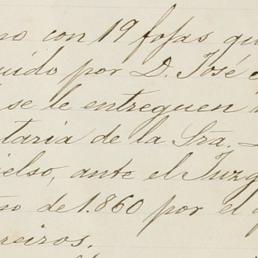 no con 19 fojas qu
uido por D. José
se le entreguen
taria de la Sra.
ielso, ante el Juzg
no de 1.860 por el
reiros.